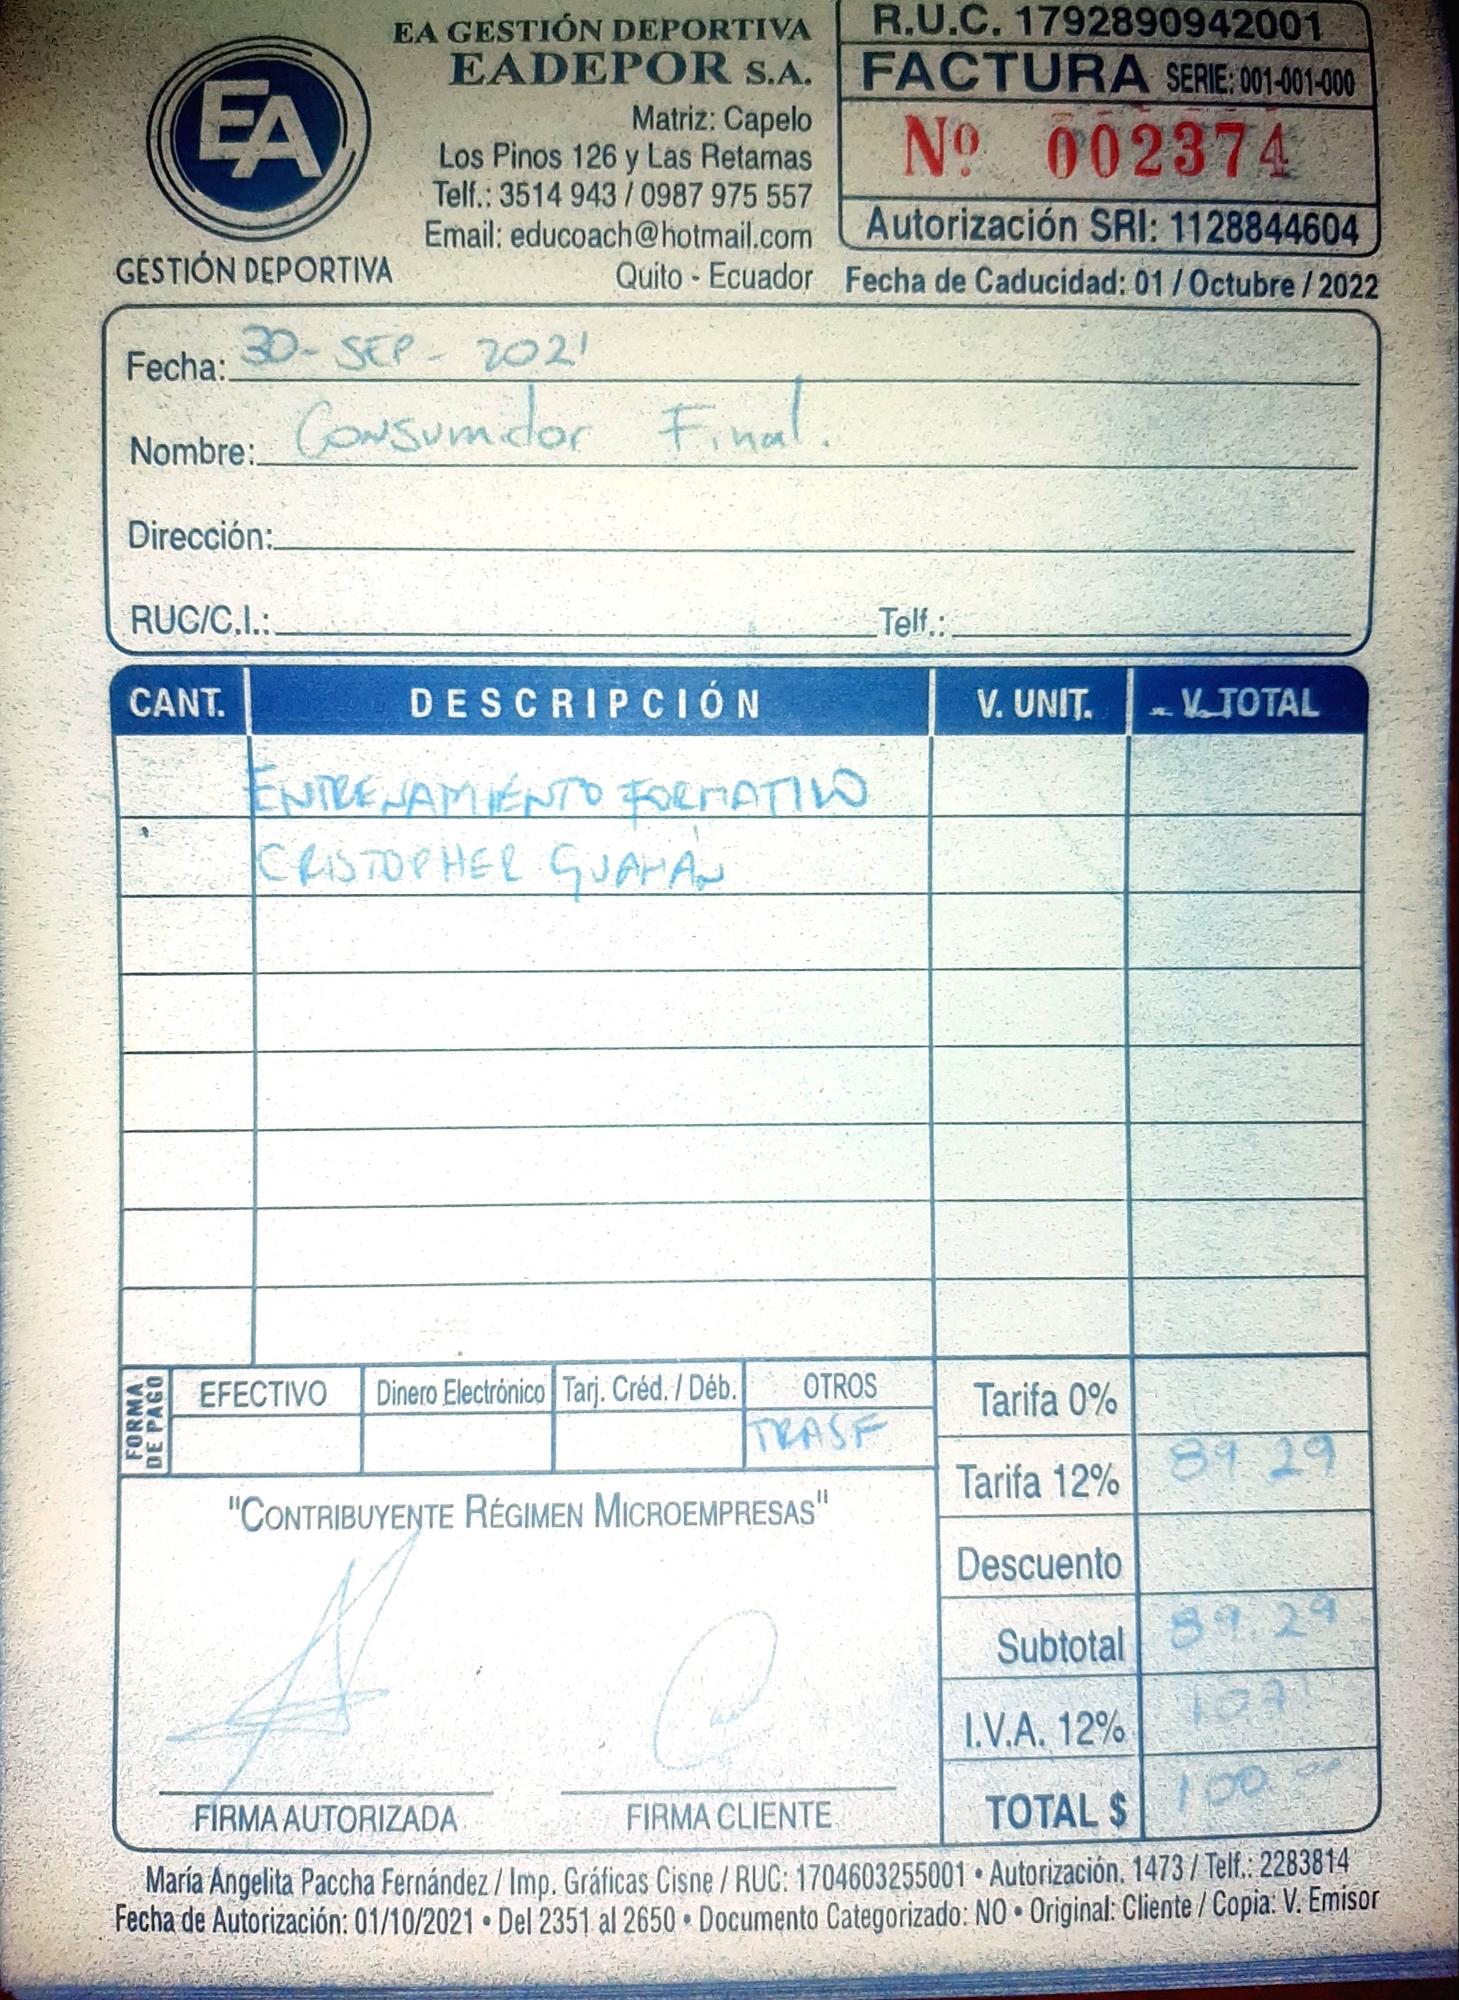 EA GESTIÓN DEPORTIVA
EADEPOR S.A.
Matriz: Capelo
Los Pinos 126 y Las Retamas
Telf.: 3514 943 / 0987 975 557
Email: educoach@hotmail.com
Quito - Ecuador
EA
GESTIÓN DEPORTIVA
R.U.C. 1792890942001
FACTURA SERIE: 001-001-000
Nº 002374
Autorización SRI: 1128844604
Fecha de Caducidad: 01 / Octubre / 2022
Fecha: 30-SEP-2021
Nombre: Consumidor Final.
Dirección:
RUC/C.I.: Telf.:
CANT. DESCRIPCIÓN V. UNIT. V. TOTAL
ENTRENAMIENTO FORMATIVO
CRISTOPHER GUAMÁN
FORMA DE PAGO
EFECTIVO Dinero Electrónico Tarj. Créd. / Déb. OTROS
TRASF
Tarifa 0%
Tarifa 12% 89 29
Descuento
Subtotal 89.29
I.V.A. 12% 1071
TOTAL $ 100 00
"CONTRIBUYENTE RÉGIMEN MICROEMPRESAS"
FIRMA AUTORIZADA FIRMA CLIENTE
María Angelita Paccha Fernández / Imp. Gráficas Cisne / RUC: 1704603255001 • Autorización. 1473 / Telf.: 2283814
Fecha de Autorización: 01/10/2021 • Del 2351 al 2650 • Documento Categorizado: NO • Original: Cliente / Copia: V. Emisor